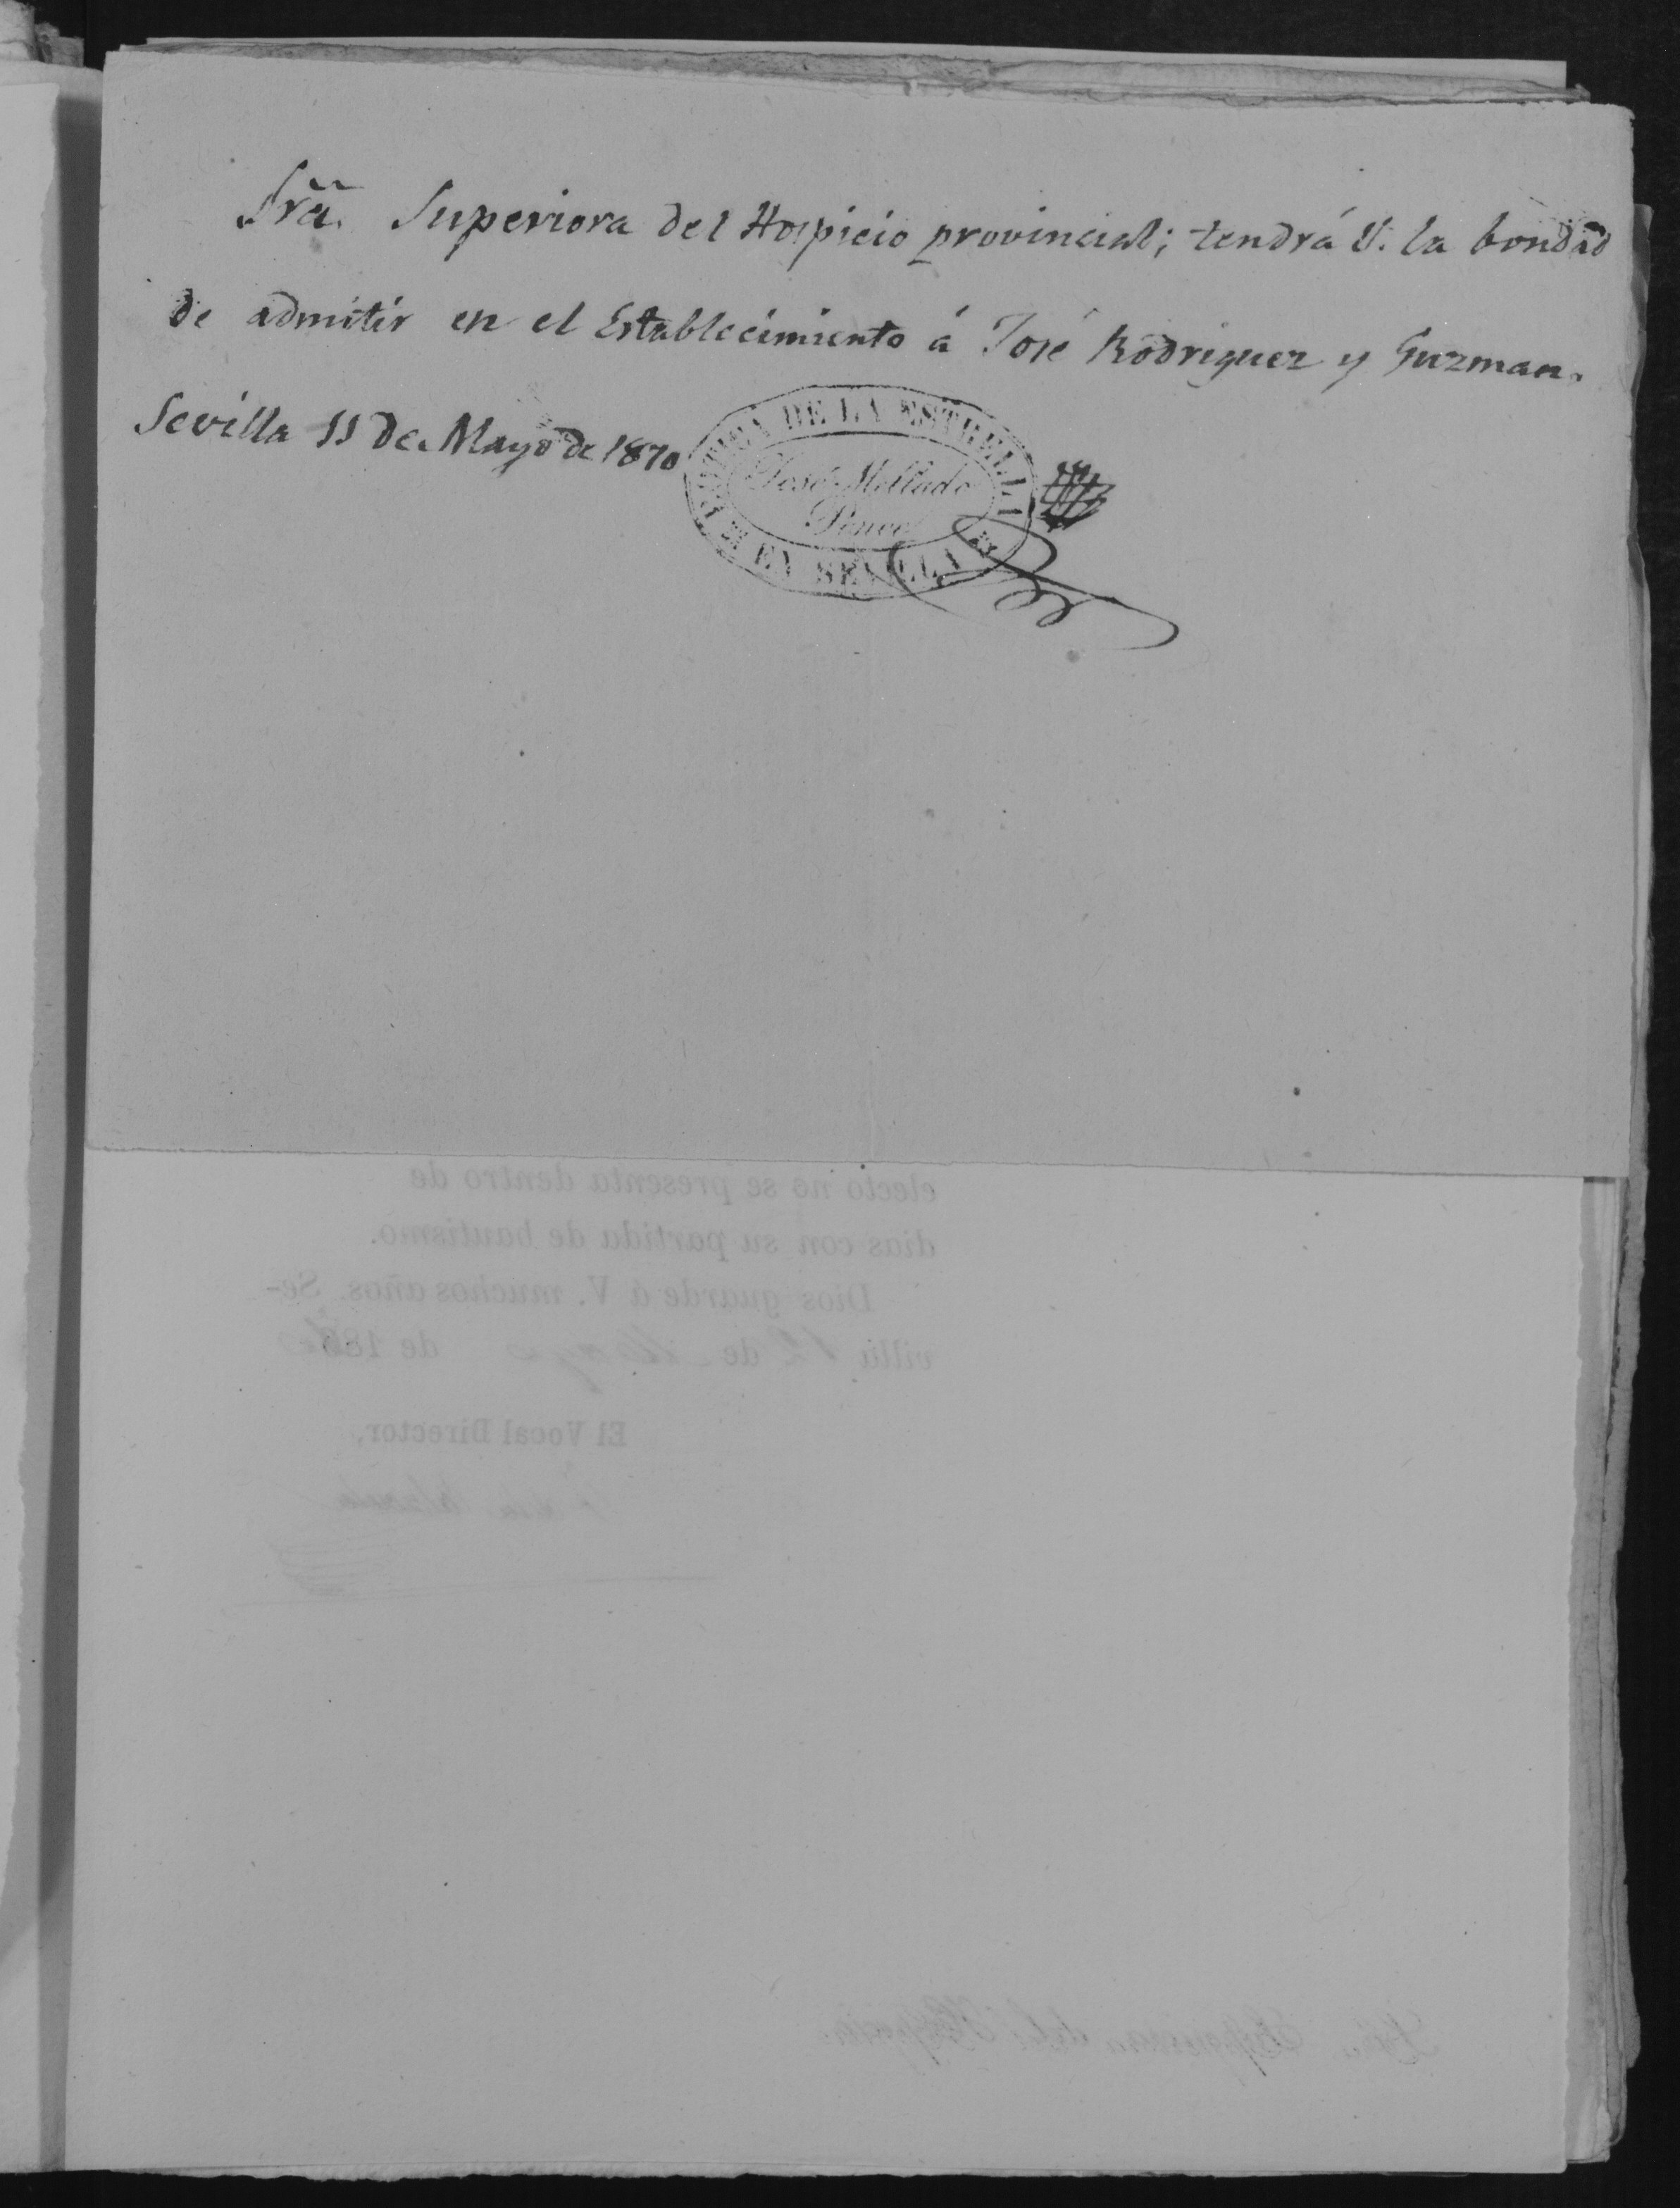 Srã. Superiora del Hospicio provincial; tendrá V. la bondad
de admitir en el Establecimiento á José Rodriguez y Guzman.
Sevilla 11 de Mayo de 1870
BOTICA DE LA ESTRELLA
José Mellado
Ponce
EN SEVILLA
efecto no se presenta dentro de
dias con su partida de bautismo.
Dios guarde á V. muchos años. Se-
villa 12 de Mayo de 1870
El Vocal Director,
Sra. Superiora del Hospicio